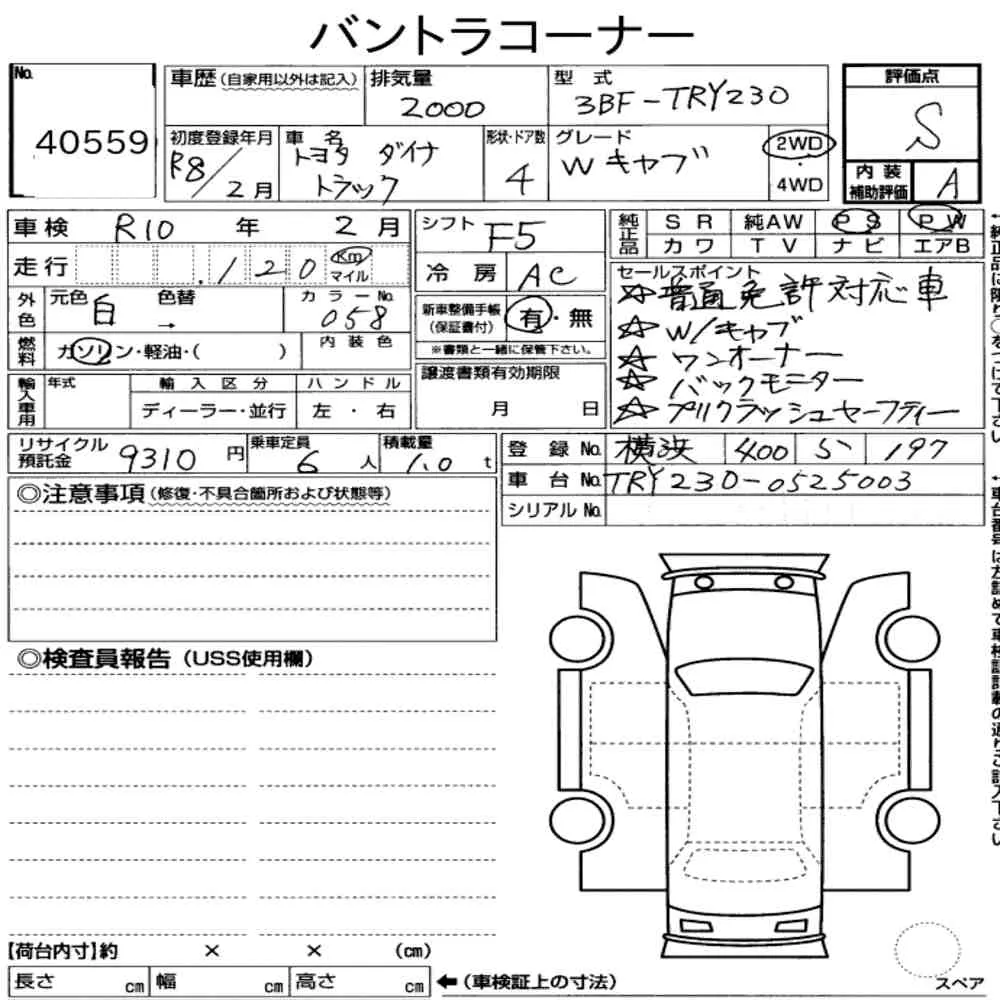 バントラコーナー
No. 40559
車歴 (自家用以外は記入)
排気量 2000
型式 3BF-TRY230
評価点 S
初度登録年月 R8/2月
車名 トヨタ ダイナ トラック
形状・ドア数 4
グレード Wキャブ
2WD・4WD
内装補助評価 A
車検 R10年 2月
シフト F5
純正品 SR 純AW PS PW
カワ TV ナビ エアB
走行 .120 Km マイル
冷房 AC
セールスポイント
☆普通免許対応車
☆W/キャブ
☆ワンオーナー
☆バックモニター
☆プリクラッシュセーフティー
外色 元色 白 → 色替
カラーNo. 058
新車整備手帳 (保証書付) 有・無
※書類と一緒に保管下さい。
燃料 ガソリン・軽油・( )
内装色
譲渡書類有効期限 月 日
輸入車用 年式 輸入区分 ハンドル
ディーラー・並行 左・右
リサイクル預託金 9310円
乗車定員 6人
積載量 1.0t
登録No. 横浜 400 197
車台No. TRY230-0525003
シリアルNo.
◎注意事項 (修復・不具合箇所および状態等)
◎検査員報告 (USS使用欄)
【荷台内寸】約 × × (cm)
長さ cm 幅 cm 高さ cm
←(車検証上の寸法)
スペア